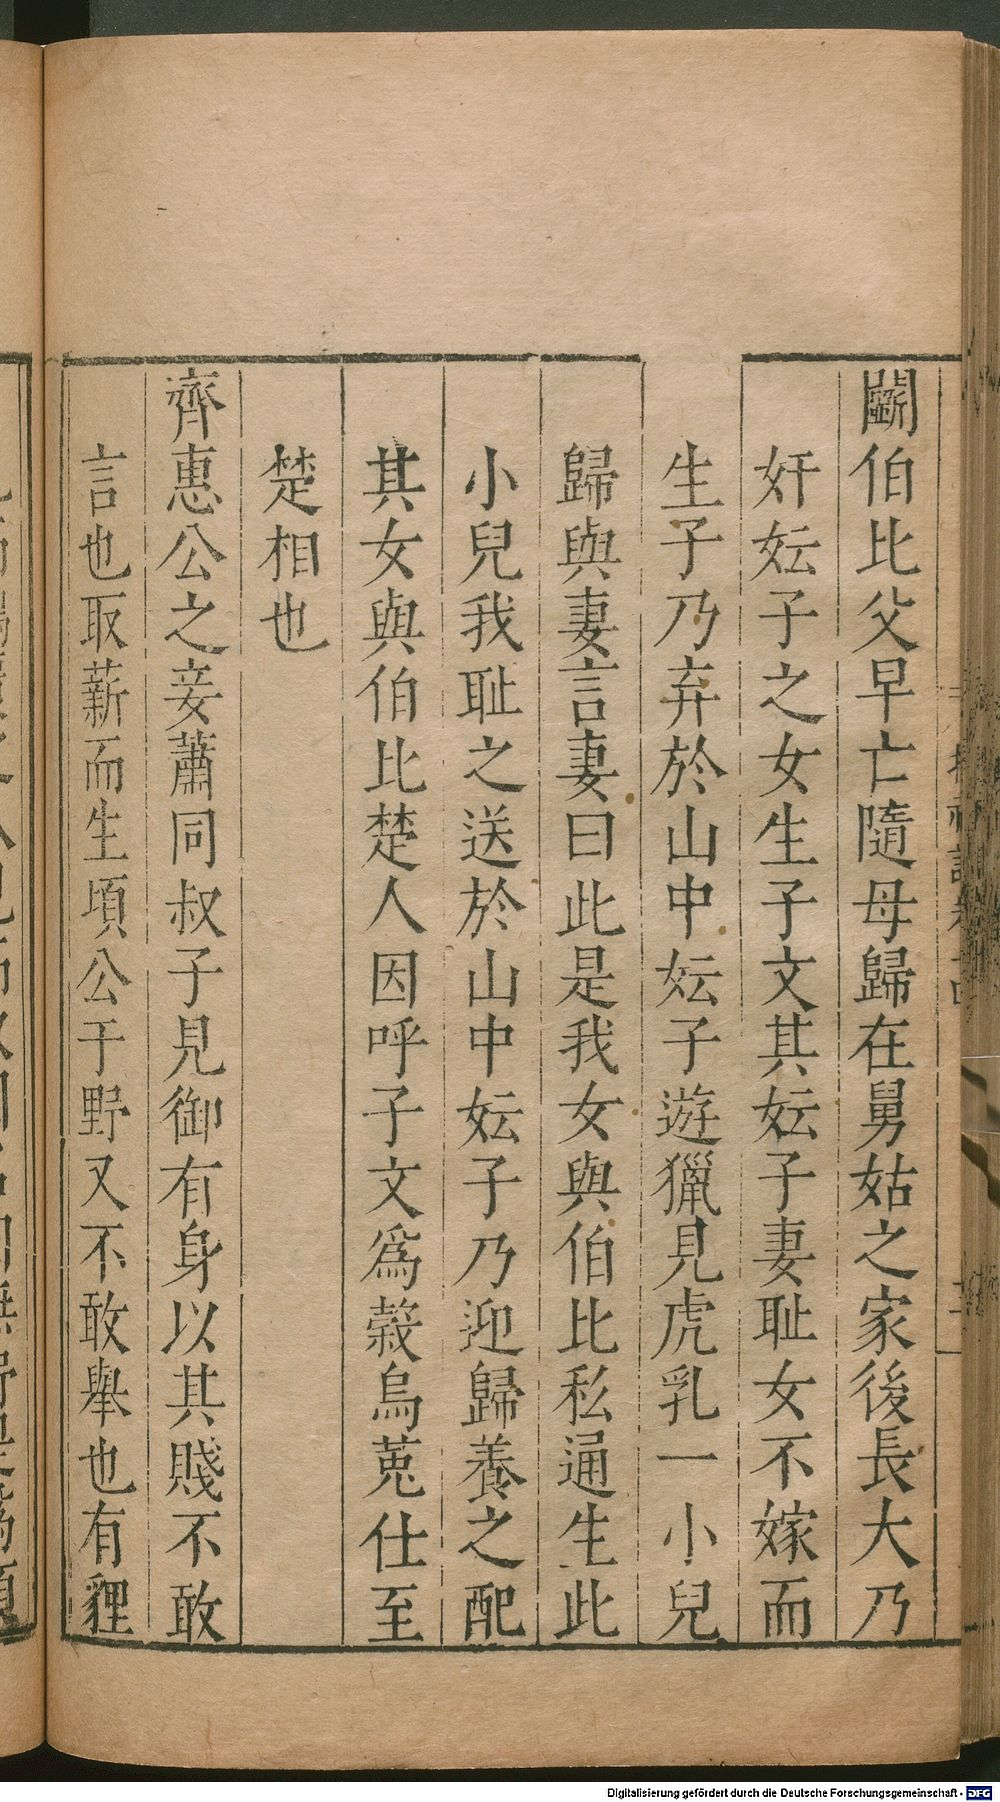 鬭伯比父早亡隨母歸在舅姑之家後長大乃
奸妘子之女生子文其妘子妻耻女不嫁而
生子乃弃於山中妘子遊獵見虎乳一小兒
歸與妻言妻曰此是我女與伯比私通生此
小兒我耻之送於山中妘子乃迎歸養之配
其女與伯比楚人因呼子文爲穀烏菟仕至
楚相也
齊惠公之妾蕭同叔子見御有身以其賤不敢
言也取薪而生頃公于野又不敢舉也有貍
Digitalisierung gefördert durch die Deutsche Forschungsgemeinschaft - DFG